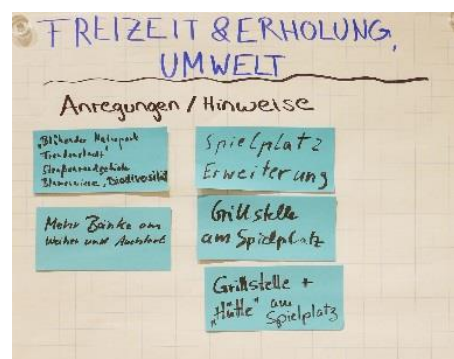 FREIZEIT & ERHOLUNG,
UMWELT
Anregungen / Hinweise
„Blühender Naturpark
Freudenstadt"
Blumenwiese, Biodiversität
Mehr Bänke am
Weiher und
Spielplatz
Erweiterung
Grillstelle
am Spielplatz
Grillstelle +
„Hütte" am
Spielplatz